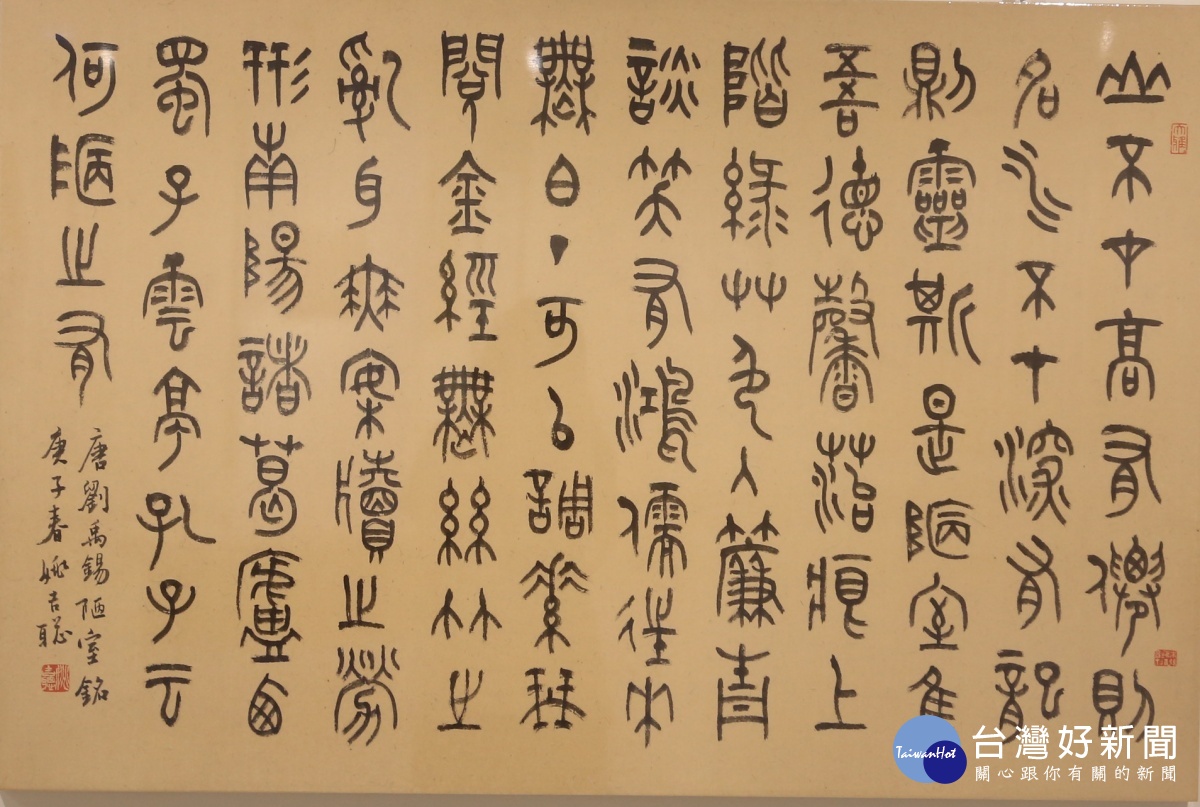 山不在高有僊則
名水不在深有龍
則靈斯是陋室隹
吾德馨苔痕上
階綠艸色入簾青
談笑有鴻儒往來
無白丁可以調素琴
閱金經無絲竹之
亂耳無案牘之勞
形南陽諸葛廬西
蜀子雲亭孔子云
何陋之有
唐劉禹錫陋室銘
庚子春姚吉聰
TaiwanHot
台灣好新聞
關心跟你有關的新聞